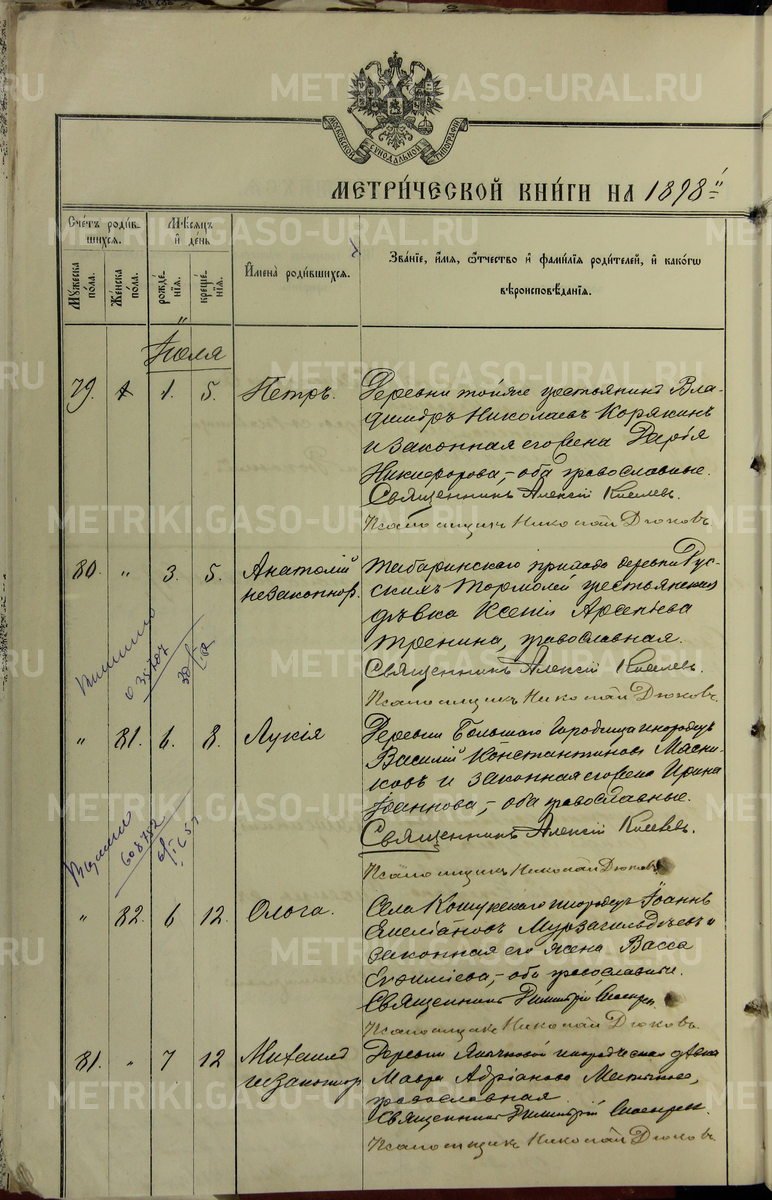 МОСКОВСКОЙ СѴНОДАЛЬНОЙ ТИПОГРАФІИ
МЕТРИ́ЧЕСКОЙ КНИ́ГИ НА 1898
Сче́тъ роди́в-
шихся.
Мѣ́сяцъ
и҆ де́нь
Мꙋ́жеска
по́ла.
Же́нска
по́ла.
рожде́-
нїѧ.
креще́-
нїѧ.
И҆мена̀ роди́вшихся.
Зва́нїе, и҆́мѧ, ѻ҆́тчество и҆ фами́лїѧ роди́телей, и҆ како́гѡ
вѣроисповѣ́данїѧ.
Іюля
79. 1. 5. Петръ. Деревни тойже крестьянинъ Вла-
димiръ Николаевъ Корякинъ
и законная его жена Дарія
Никифорова,- оба православные.
Священникъ Алексій Киселев.
Псаломщикъ Николай Дюковъ.
80. " 3. 5. Анатолій
незаконнор.
Табаринскаго прихода деревни Рус-
скихъ Тормолей крестьянская
дѣвка Ксенія Арсеньева
Тренина, православная.
Священникъ Алексій Киселев.
Псаломщикъ Николай Дюковъ.
" 81. 6. 8. Лукія
Деревни Большаго Городища инородецъ
Василій Константиновъ Мясни-
ковъ и законная его жена Ирина
Іоаннова,- оба православные.
Священникъ Алексій Киселев.
Псаломщикъ Николай Дюковъ
" 82. 6 12. Ольга.
Села Кошукскаго инородецъ Іоаннъ
Емеліановъ Мурзагильдѣевъ и
законная его жена Васса
Евфиміева,- оба православные.
Священникъ Димитрій
Псаломщикъ Николай Дюковъ.
81. " 7 12 Михаилъ
незаконнор
Деревни инородческая дѣвка
Мавра Адріанова
православная
Священникъ Димитрій
Псаломщикъ Николай Дюковъ
METRIKI.GASO-URAL.RU